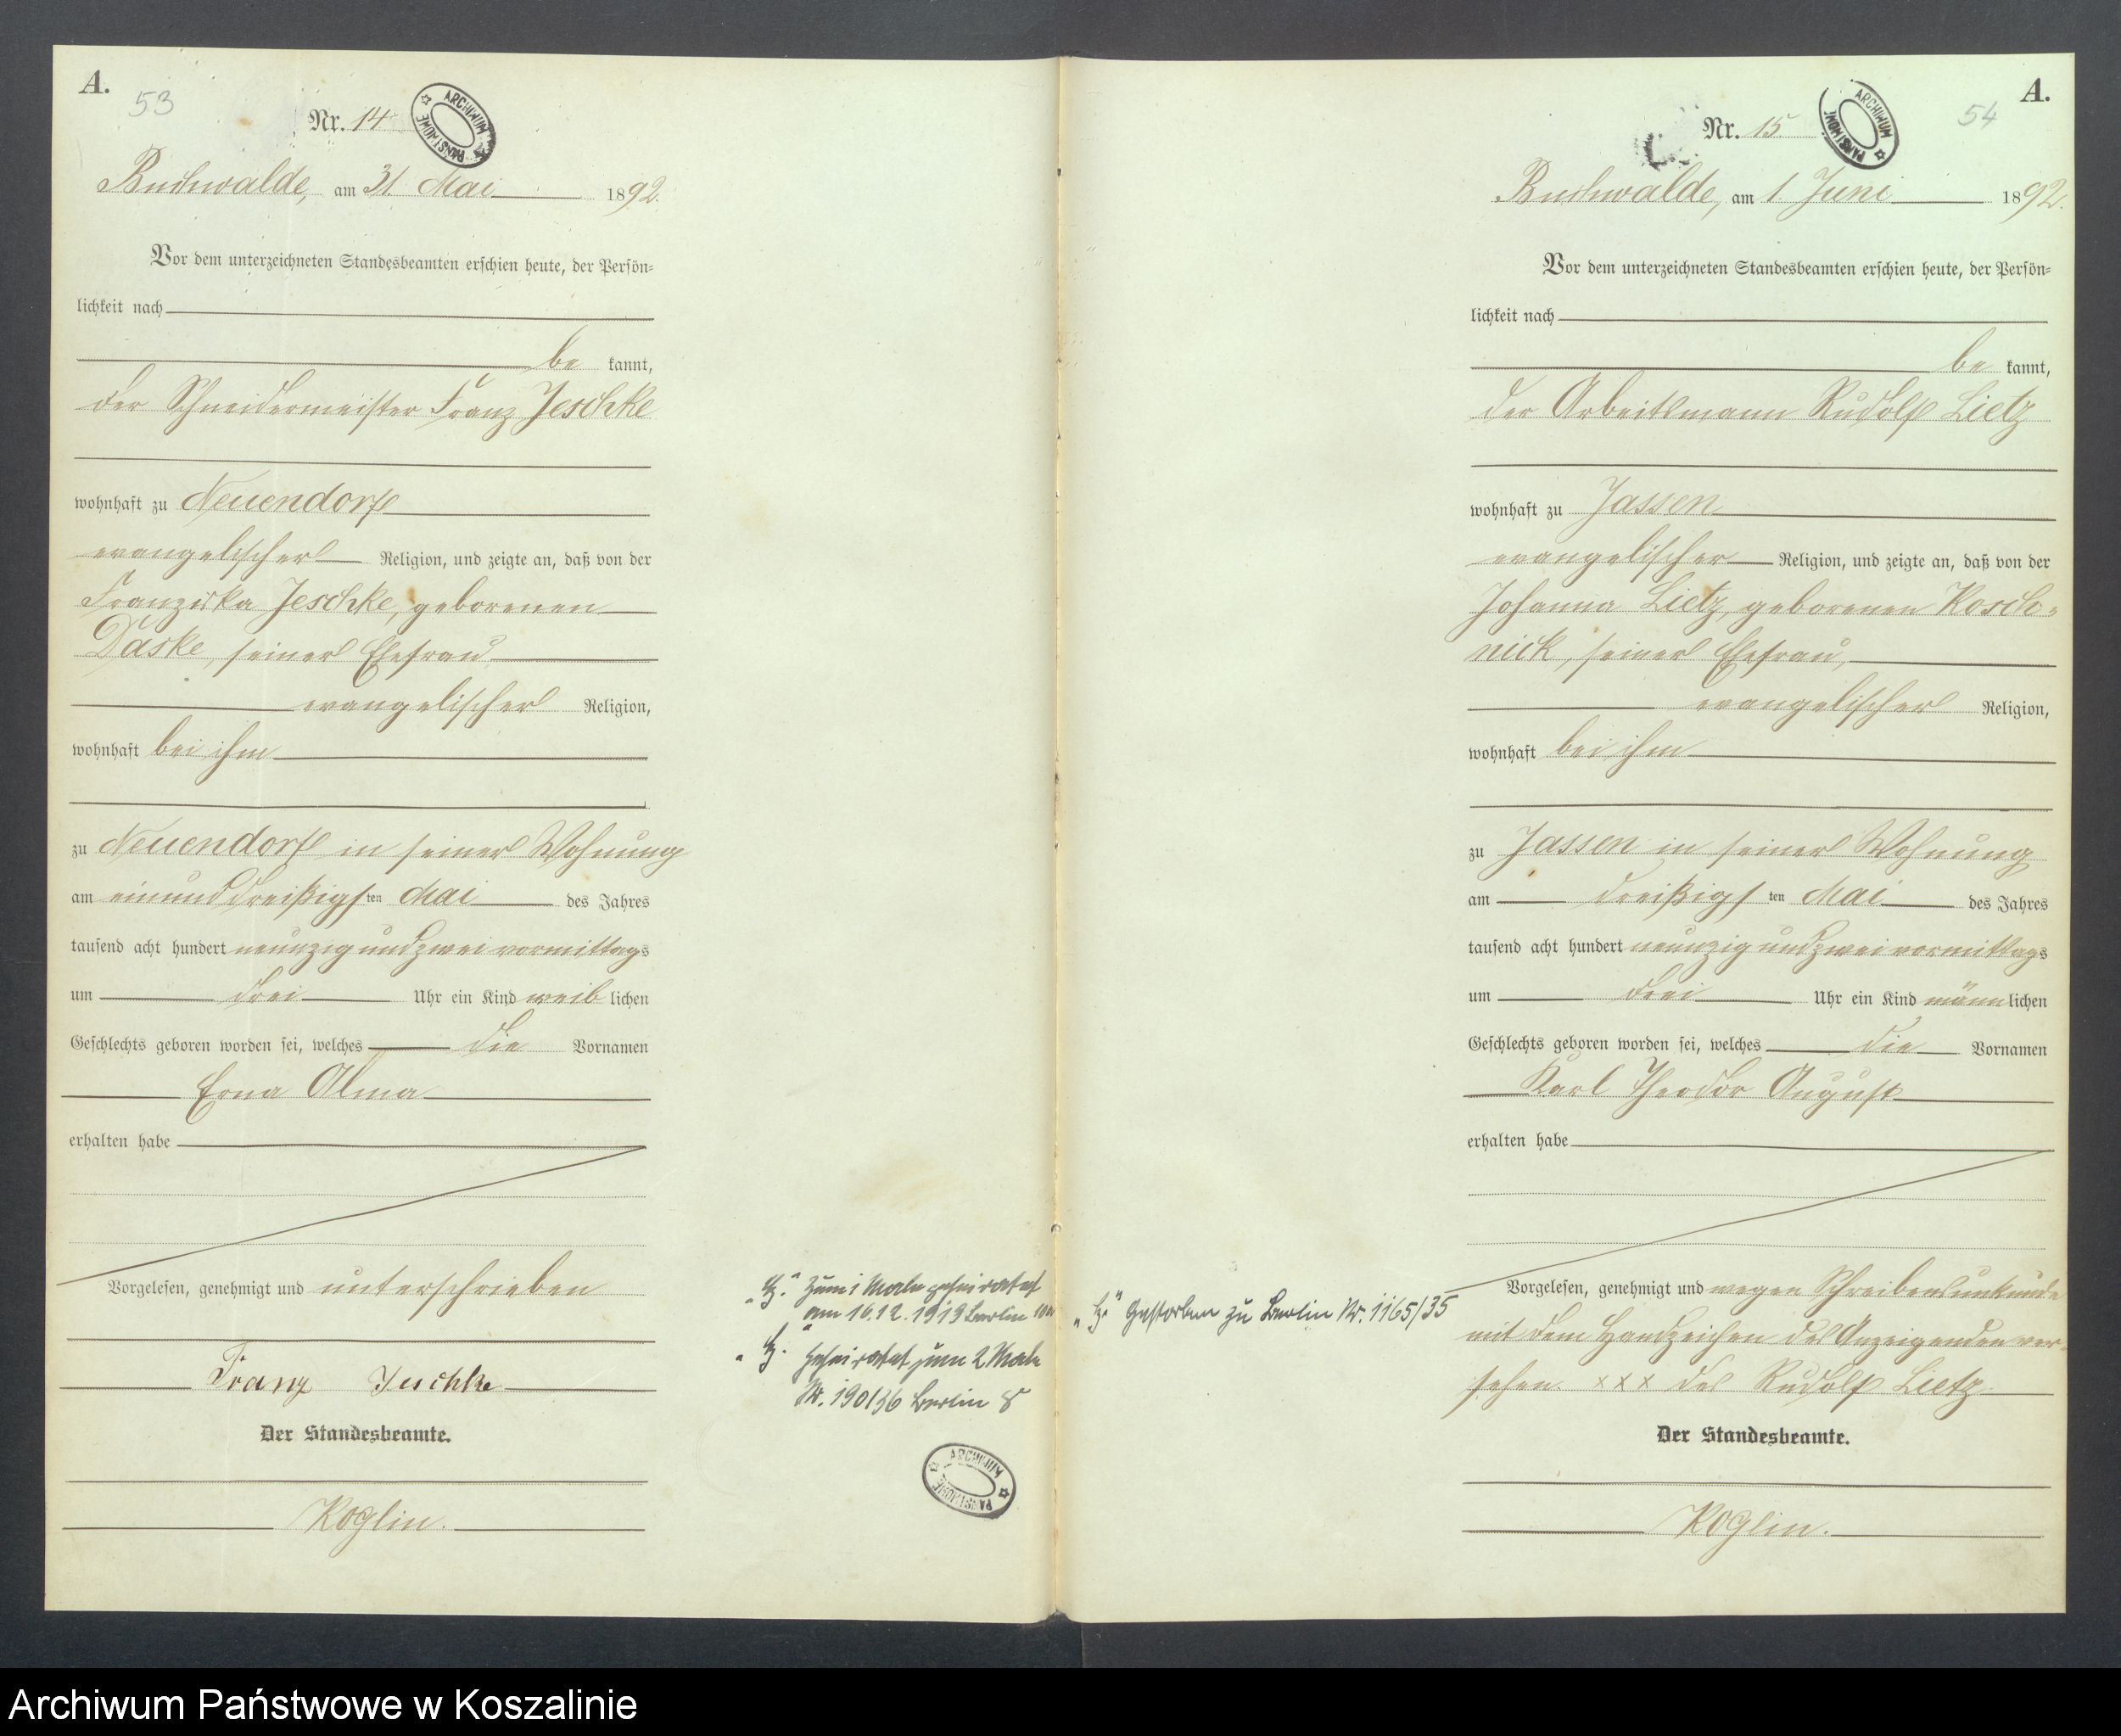 A.
53
Nr. 14
ARCHIWUM PAŃSTWOWE
Buchwalde, am 31 Mai 1892.
Vor dem unterzeichneten Standesbeamten erschien heute, der Persön=
lichkeit nach
be kannt,
der Schneidermeister Franz Jeschke
wohnhaft zu Neuendorf
evangelischer Religion, und zeigte an, daß von der
Franziska Jeschke, geborenen
Daske, seiner Ehefrau,
evangelischer Religion,
wohnhaft bei ihm
zu Neuendorf in seiner Wohnung
am einunddreißigsten Mai des Jahres
tausend acht hundert neunzig und zwei vormittags
um drei Uhr ein Kind weiblichen
Geschlechts geboren worden sei, welches die Vornamen
Erna Alma
erhalten habe
Vorgelesen, genehmigt und unterschrieben
Franz Jeschke
Der Standesbeamte.
Koglin.
zum 1 Male geheiratet
am 16.12.1919 Berlin
Geheiratet zum 2 Male
Nr. 190/36 Berlin 8
ARCHIWUM PAŃSTWOWE
A.
54
Nr. 15
ARCHIWUM PAŃSTWOWE
Buchwalde, am 1. Juni 1892.
Vor dem unterzeichneten Standesbeamten erschien heute, der Persön=
lichkeit nach
be kannt,
der Arbeitsmann Rudolf Lietz
wohnhaft zu Jassen
evangelischer Religion, und zeigte an, daß von der
Johanna Lietz, geborenen Kosch=
nick, seiner Ehefrau,
evangelischer Religion,
wohnhaft bei ihm
zu Jassen in seiner Wohnung
am dreißigsten Mai des Jahres
tausend acht hundert neunzig und zwei vormittags
um drei Uhr ein Kind männlichen
Geschlechts geboren worden sei, welches die Vornamen
Karl Theodor August
erhalten habe
Gestorben zu Berlin Nr. 1165/35
Vorgelesen, genehmigt und wegen Schreibensunkunde
mit dem Handzeichen des Anzeigenden ver=
sehen. xxx des Rudolf Lietz
Der Standesbeamte.
Koglin.
Archiwum Państwowe w Koszalinie